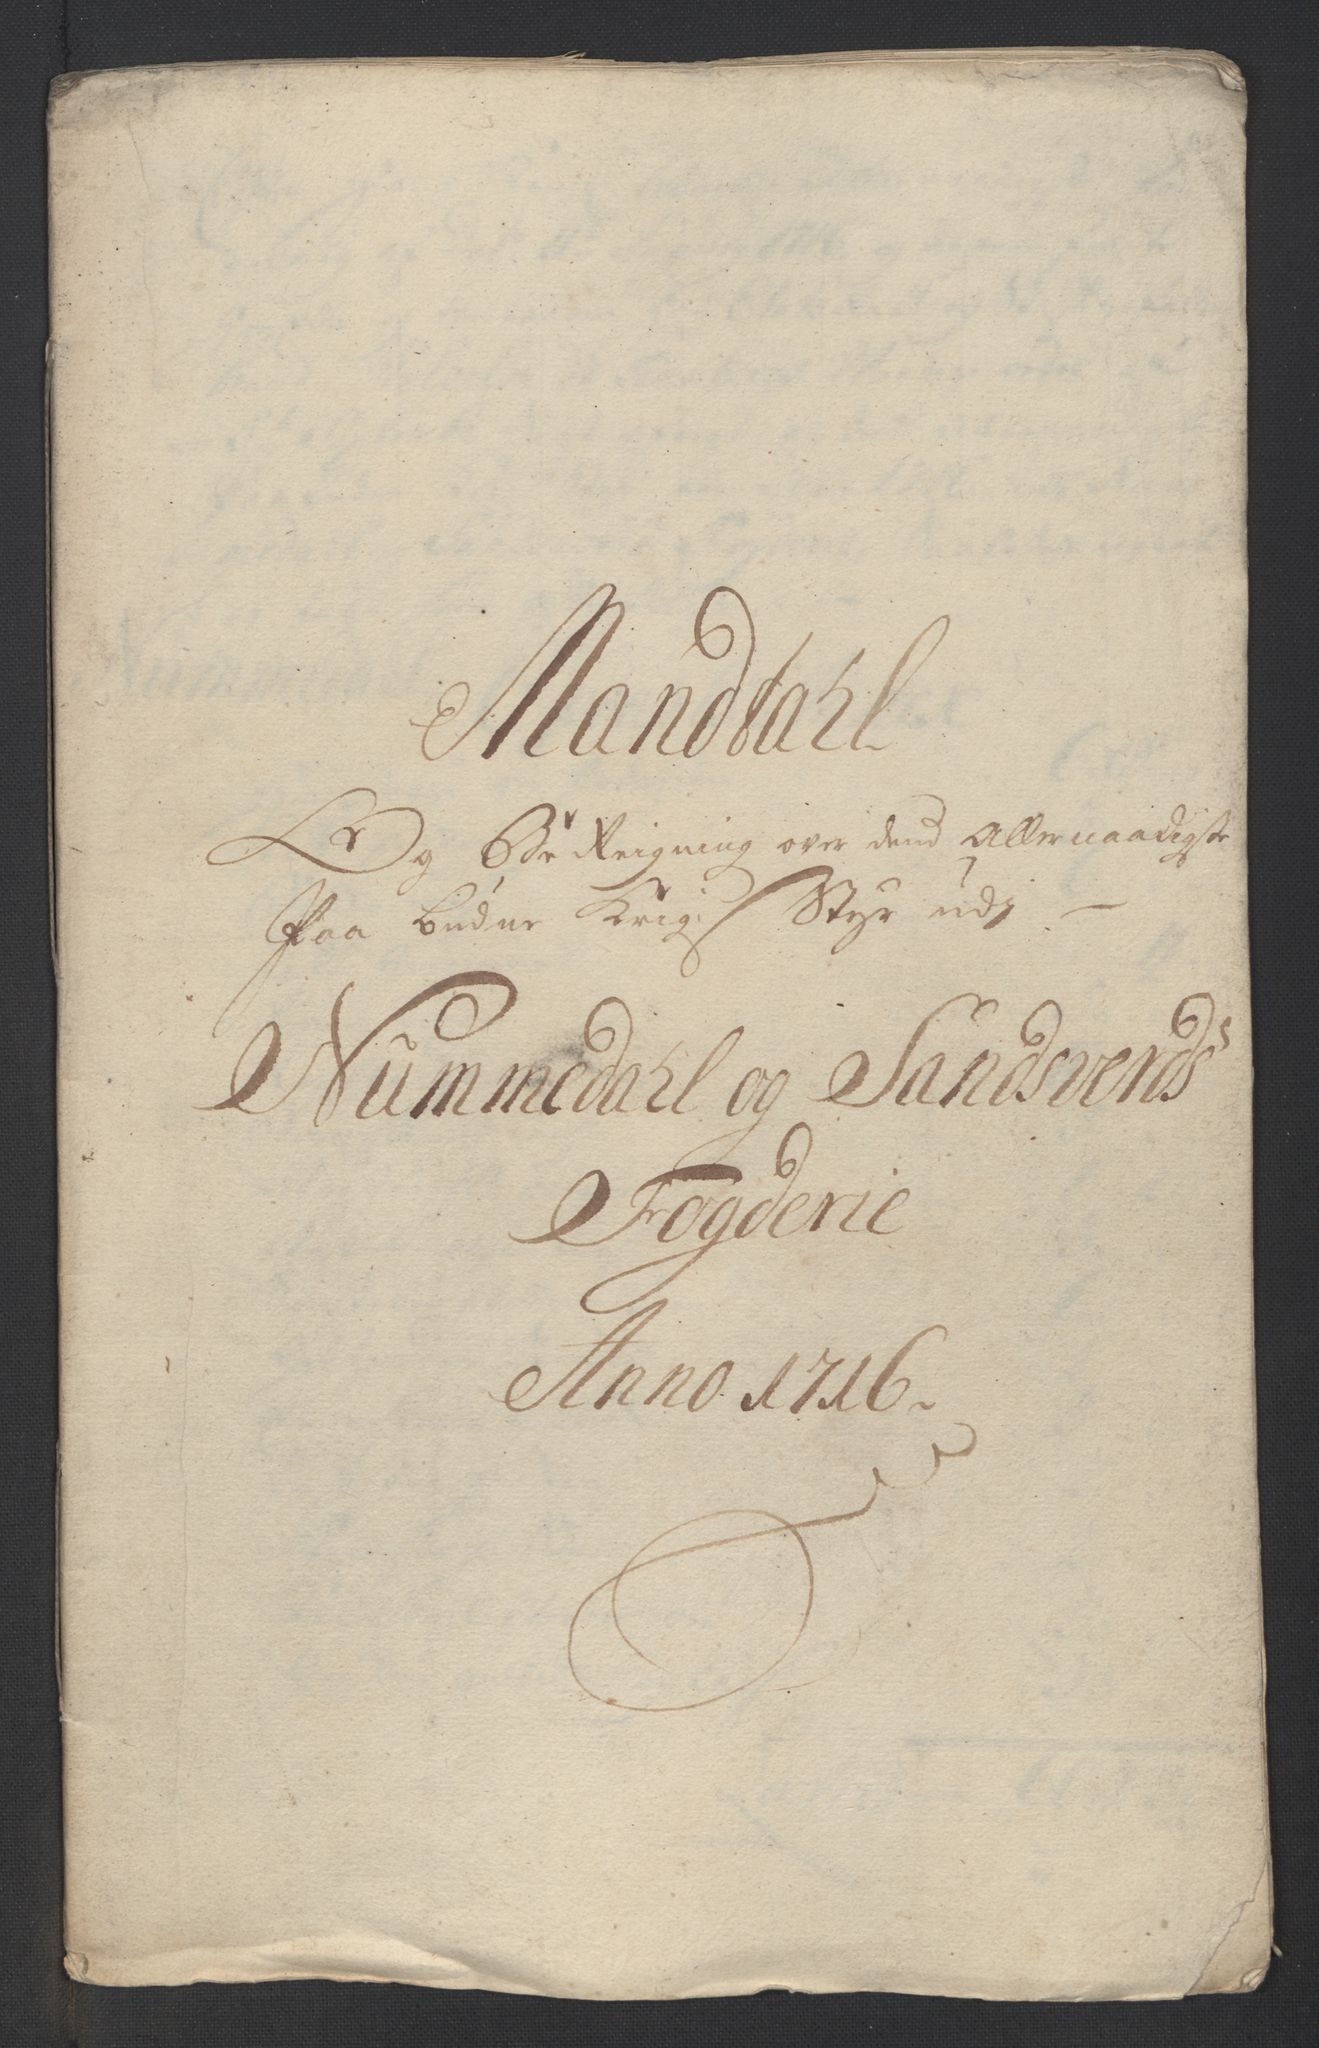 Mandtahl
Og Be Reigning over dend Allernaadigste
Paabudne Krigs Styr udj
Nummedahl og Sandsverds
Fogderie
Anno 1716.